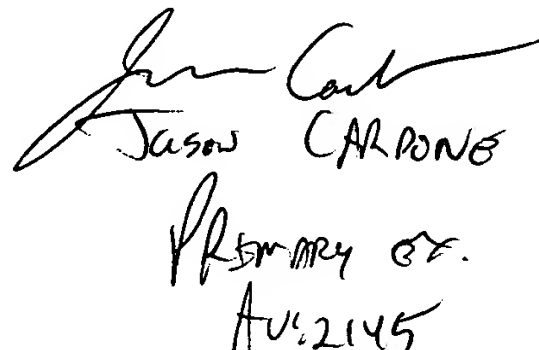 Jason CARDONE
PRIMARY EX.
AU: 2145